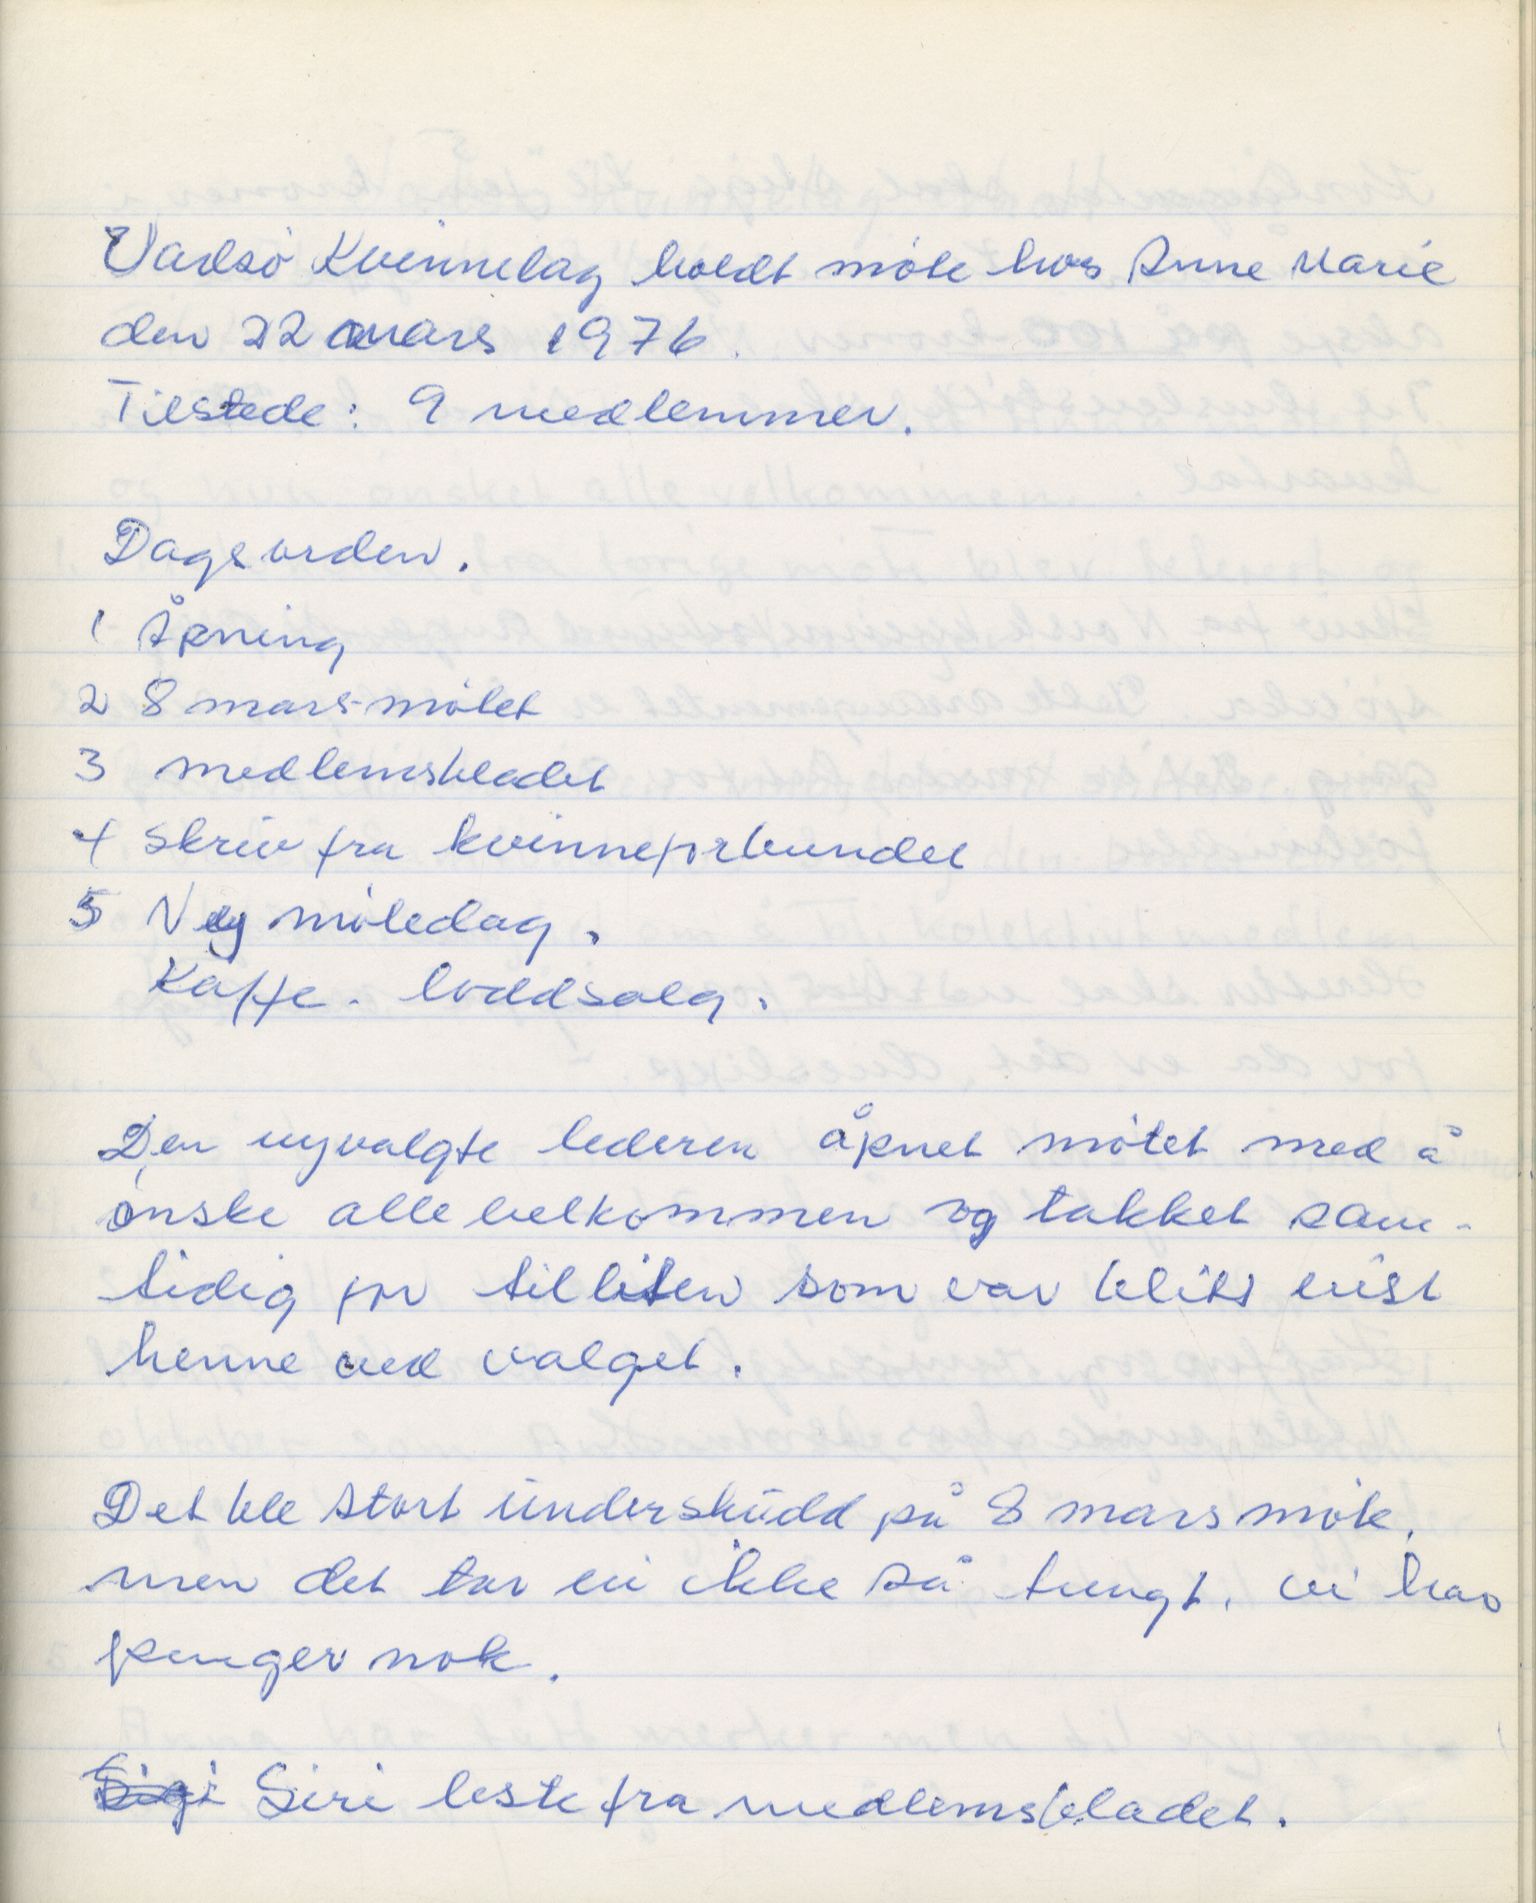 Vadsø Kvinnelag holdt møte hos Anne Marie
den 22 mars 1976.
Tilstede: 9 medlemmer.
Dagsorden.
1 Åpning
2 8 mars-møtet
3 medlemsbladet
4 skriv fra kvinneforbundet
5 Ny møtedag.
Kaffe. loddsalg.
Den nyvalgte lederen åpnet møtet med å
ønske alle velkommen og takket sam-
tidig for tilliten som var blitt vist
henne ved valget.
Det ble stort underskudd på 8 mars møte,
men det tar vi ikke så tungt, vi har
penger nok.
Siri leste fra medlemsbladet.